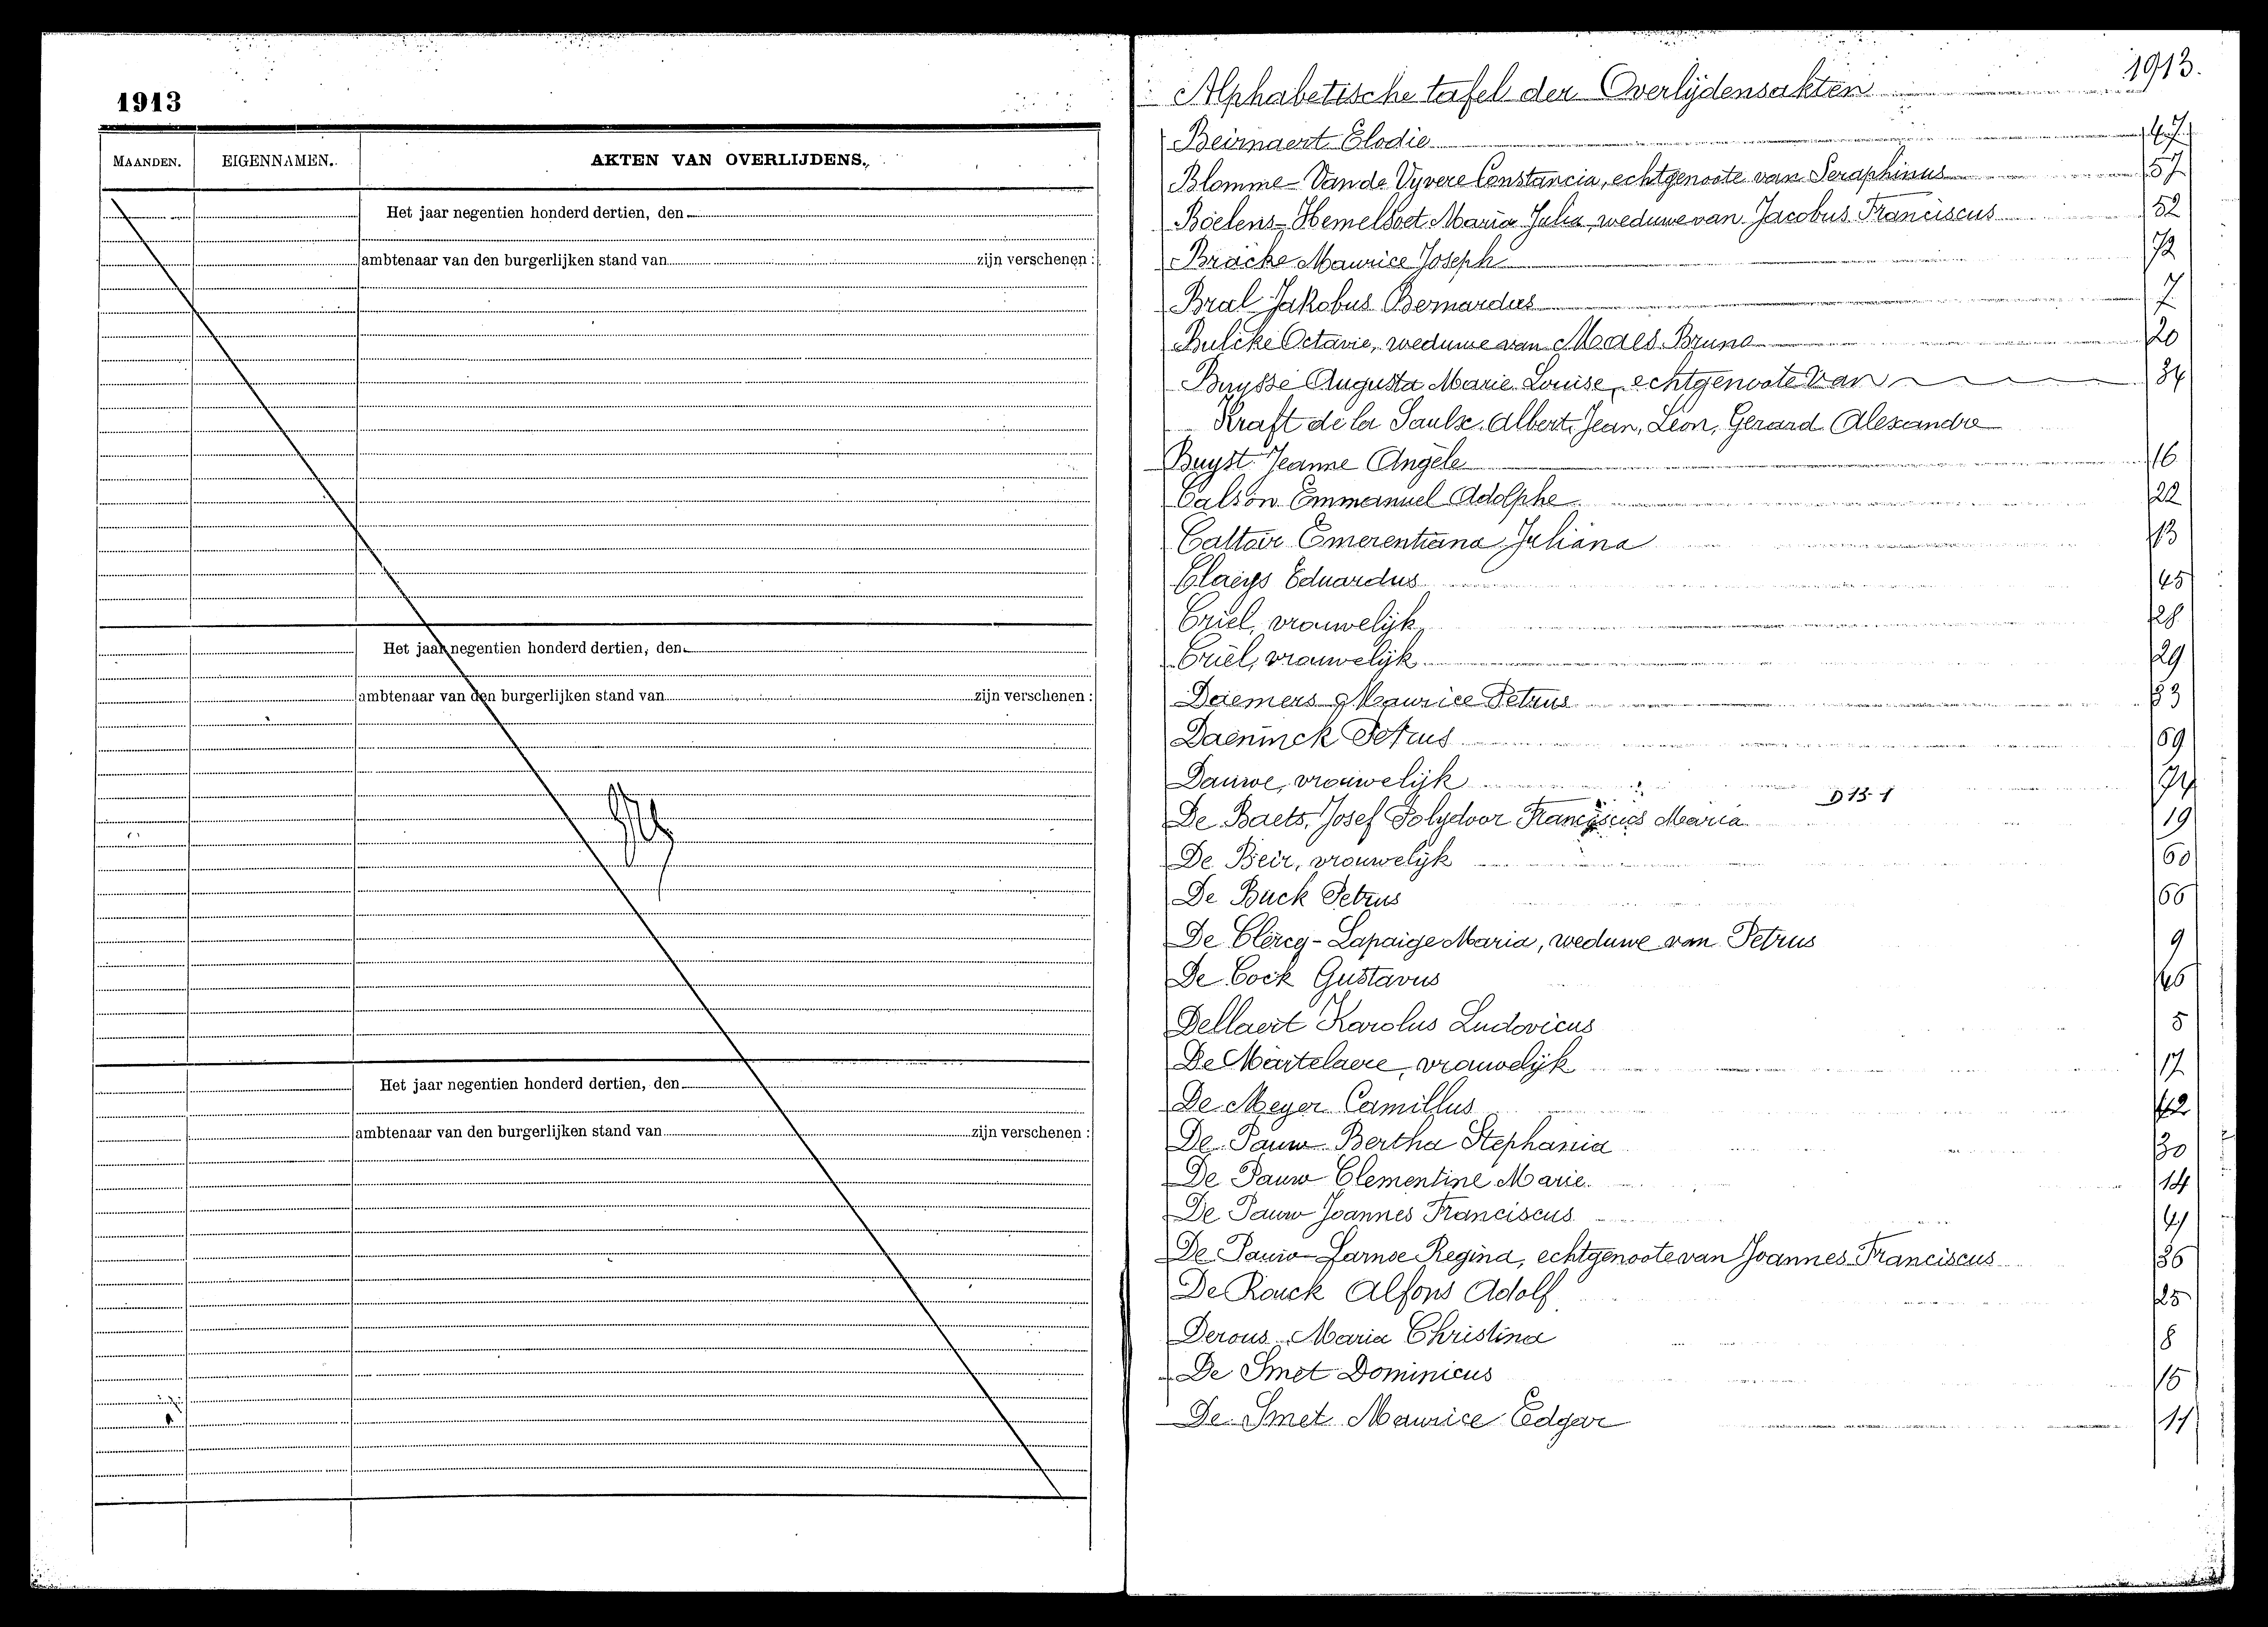 1913
MAANDEN. EIGENNAMEN. AKTEN VAN OVERLIJDENS.
Het jaar negentien honderd dertien, den
ambtenaar van den burgerlijken stand van zijn verschenen :
Het jaar negentien honderd dertien, den
ambtenaar van den burgerlijken stand van zijn verschenen :
Het jaar negentien honderd dertien, den
ambtenaar van den burgerlijken stand van zijn verschenen :
1913.
Alphabetische tafel der Overlijdensakten
Beirnaert Elodie 47
Blomme - Van de Vyvere Constancia, echtgenoote van Seraphinus 57
Boelens - Hemelsoet Maria Julia, weduwe van Jacobus Franciscus 52
Bracke Maurice Joseph 72
Bral Jakobus Bernardus 7
Bulcke Octavie, weduwe van Maes Bruno 20
Buysse Augusta Marie Louise, echtgenoote Van 34
Kraft de la Saulx Albert, Jean, Léon, Gerard Alexandre
Buyst Jeanne Angèle 16
Calson Emmanuel Adolphe 22
Cattoir Emerentiana Juliana 13
Claeys Eduardus 45
Criel, vrouwelijk 28
Criel, vrouwelijk 29
Daemers Maurice Petrus 33
Daeninck Petrus 69
Dauwe, vrouwelijk 74
D 13-1
De Baets, Josef Polydoor Franciscus Maria 19
De Beir, vrouwelijk 60
De Buck Petrus 66
De Clercq - Lapaige Maria, weduwe van Petrus 9
De Cock Gustavus 46
Dellaert Karolus Ludovicus 5
De Martelaere, vrouwelijk 17
De Meyer Camillus 42
De Pauw Bertha Stephania 30
De Pauw Clementine Marie 14
De Pauw Joannes Franciscus 41
De Pauw - Larnoe Regina, echtgenoote van Joannes Franciscus 36
De Rouck Alfons Adolf 25
Derous Maria Christina 8
De Smet Dominicus 15
De Smet Maurice Edgar 11